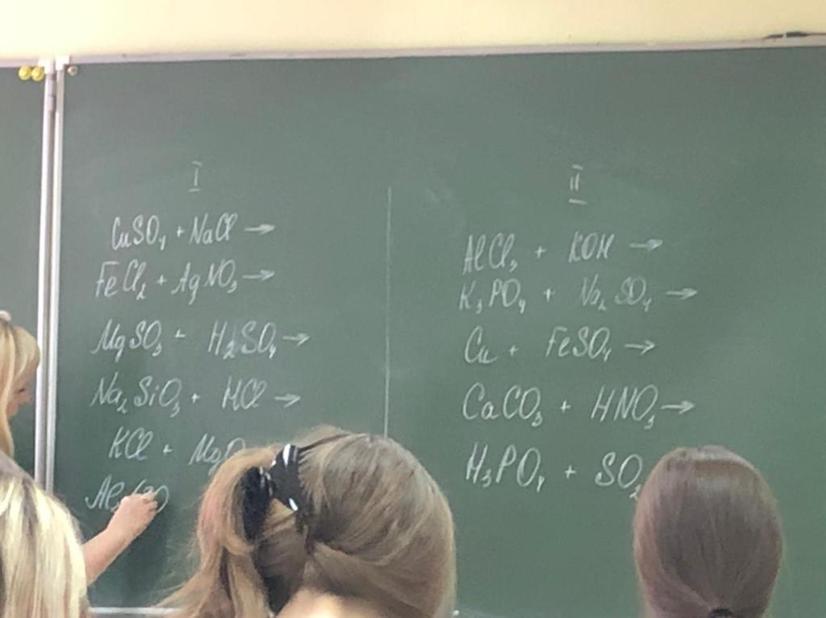 I
CuSO₄ + NaCl →
FeCl₂ + AgNO₃ →
MgSO₃ + H₂SO₄ →
Na₂SiO₃ + HCl →
KCl +
II
AlCl₃ + KOH →
K₃PO₄ + Na₂SO₄ →
Cu + FeSO₄ →
CaCO₃ + HNO₃ →
H₃PO₄ + SO₂